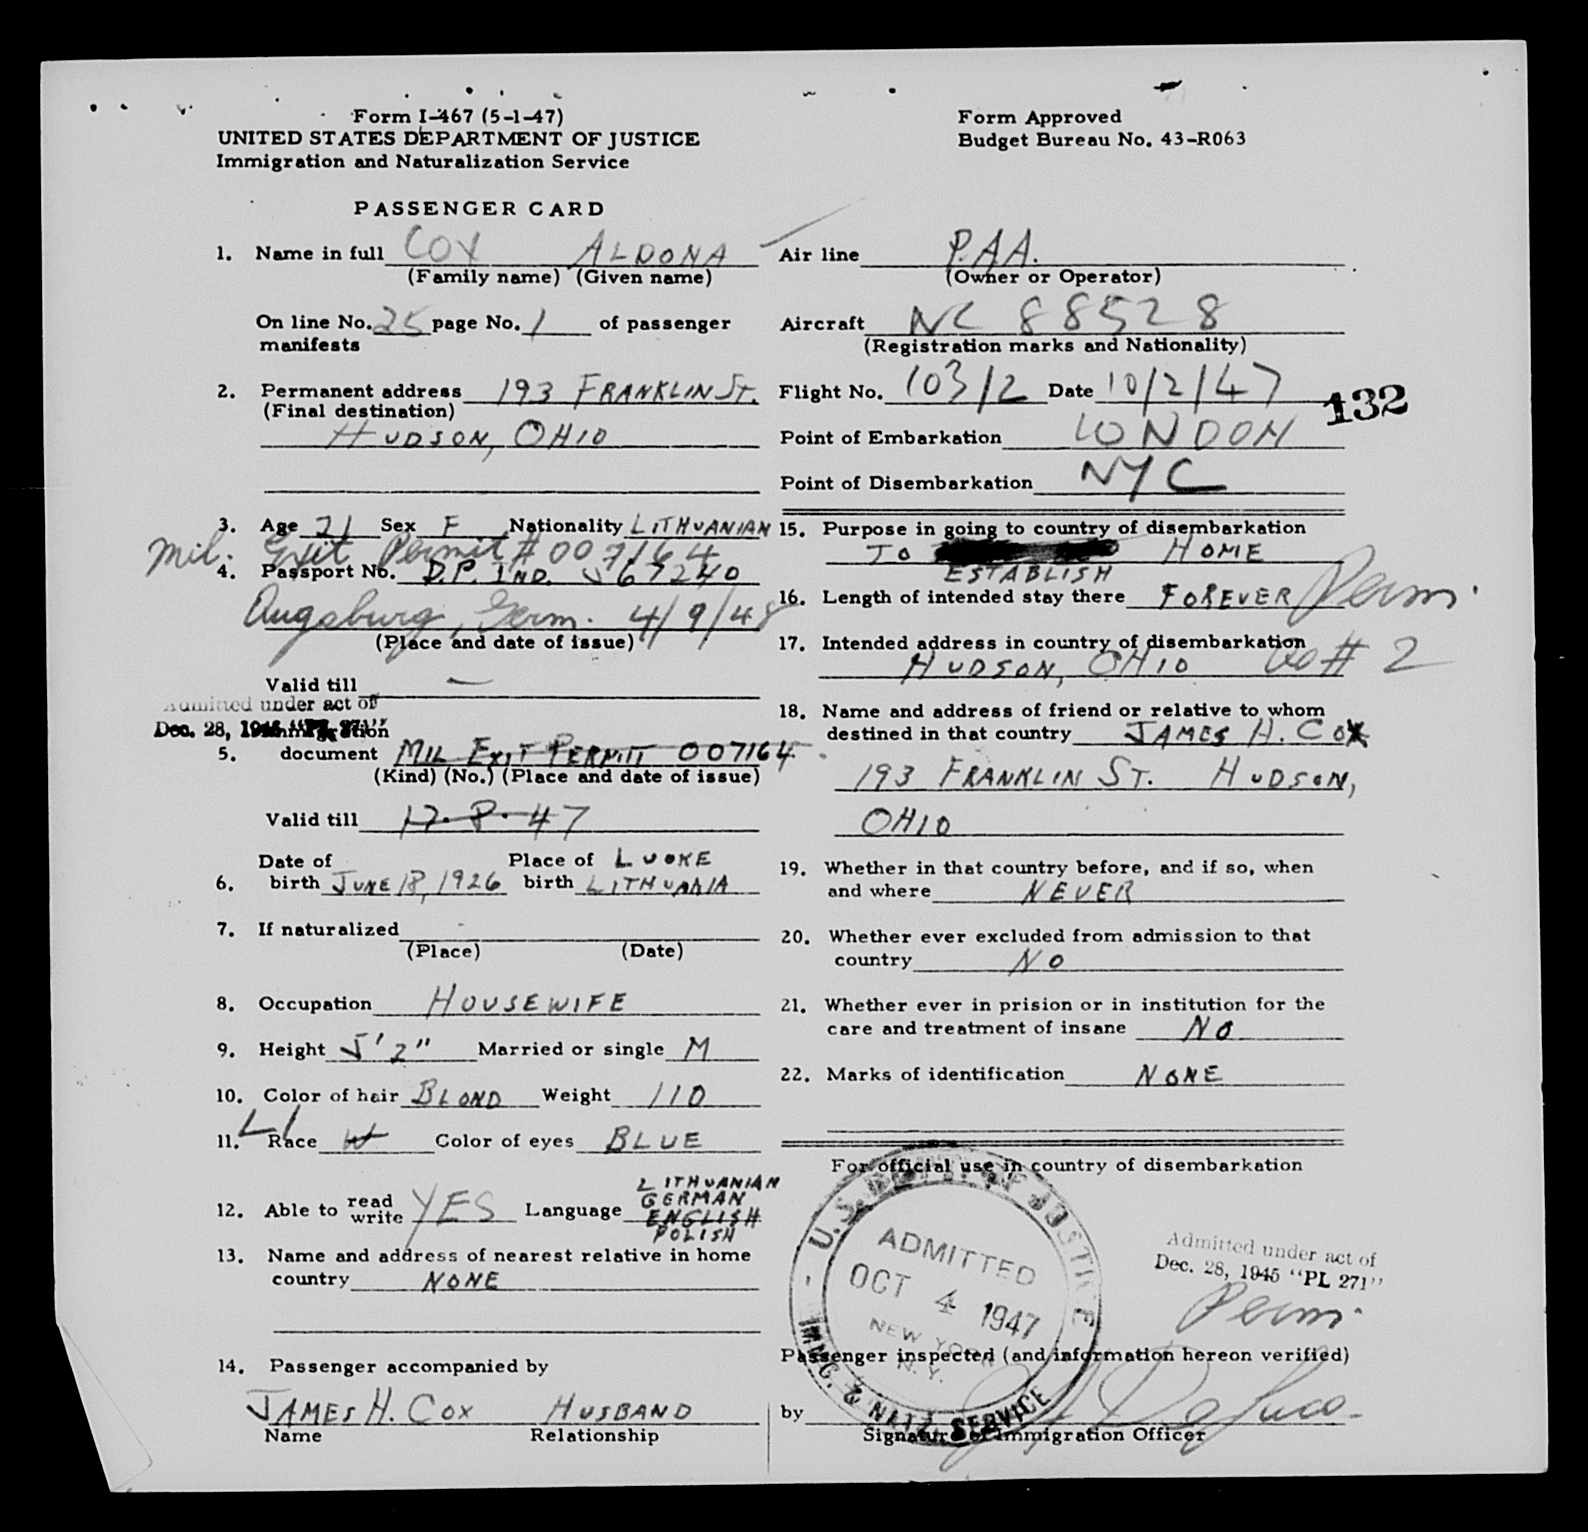 Form I-467 (5-1-47)
UNITED STATES DEPARTMENT OF JUSTICE
Immigration and Naturalization Service
Form Approved
Budget Bureau No. 43-R063
PASSENGER CARD
1. Name in full COX ALDONA
(Family name) (Given name)
On line No. 25 page No. 1 of passenger
manifests
2. Permanent address 193 FRANKLIN ST.
(Final destination)
HUDSON, OHIO
3. Age 21 Sex F Nationality LITHUANIAN
Mil. Exit Permit # 007164
4. Passport No. D.P. IND. J67240
Augsburg, Germ. 4/9/48
(Place and date of issue)
Valid till —
Admitted under act of
Dec. 28, 1945 "PL 271"
Immigration
5. document MIL EXIT PERMIT 007164
(Kind) (No.) (Place and date of issue)
Valid till 17-8-47
Date of Place of LUOKE
6. birth JUNE 18, 1926 birth LITHUANIA
7. If naturalized -
(Place) (Date)
8. Occupation HOUSEWIFE
9. Height 5' 2" Married or single M
10. Color of hair BLOND Weight 110
11. Race W Color of eyes BLUE
LITHUANIAN
GERMAN
12. Able to read write YES Language ENGLISH
POLISH
13. Name and address of nearest relative in home
country NONE
14. Passenger accompanied by
JAMES H. COX HUSBAND
Name Relationship
Air line P.AA.
(Owner or Operator)
Aircraft NC 88528
(Registration marks and Nationality)
Flight No. 103/2 Date 10/2/47
132
Point of Embarkation LONDON
Point of Disembarkation NYC
15. Purpose in going to country of disembarkation
TO HOME
ESTABLISH
16. Length of intended stay there FOREVER Perm.
17. Intended address in country of disembarkation
HUDSON, OHIO # 2
18. Name and address of friend or relative to whom
destined in that country JAMES H. COX
193 FRANKLIN ST. HUDSON,
OHIO
19. Whether in that country before, and if so, when
and where NEVER
20. Whether ever excluded from admission to that
country NO
21. Whether ever in prision or in institution for the
care and treatment of insane NO
22. Marks of identification NONE
For official use in country of disembarkation
U.S. DEPT. OF JUSTICE
ADMITTED
OCT 4 1947
NEW YORK
N.Y.
IMMG. & NATZ. SERVICE
Admitted under act of
Dec. 28, 1945 "PL 271"
Perm.
Passenger inspected (and information hereon verified)
by
Signature of Immigration Officer